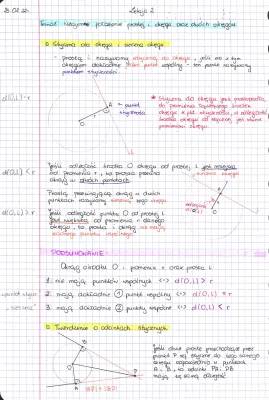 Lekcja 2
Temat: Wzajemne położenie prostej i okręgu oraz dwóch okręgów.
Styczna do okręgu i sieczna okręgu
prostą l nazywamy styczną do okręgu, jeśli ma z tym
okręgiem dokładnie jeden punkt wspólny - ten punkt nazywamy
punktem styczności
d(O,l) = r
punkt
styczności
Styczna do okręgu jest prostopadła
do promienia
okręgu
Jeśli odległość środka O okręgu od prostej l jest mniejsza
d(O,l) < r
od promienia r, to prosta przecina
okrąg w dwóch punktach.
Prostą przecinającą okrąg w dwóch
punktach nazywamy sieczną tego okręgu
d(O,l) > r
Jeśli odległość punktu O od prostej l
jest większa od promienia r danego
okręgu, to prosta i okrąg nie mają
żadnego punktu wspólnego.
PODSUMOWANIE:
Okrąg o środku O i promieniu r oraz prosta l
1. nie mają punktów wspólnych <=> d(O,l) > r
2. mają dokładnie 1 punkt wspólny <=> d(O,l) = r
3. mają dokładnie 2 punkty wspólne <=> d(O,l) < r
Twierdzenie o odcinkach stycznych
Jeśli dwie proste przechodzące przez
punkt P są styczne do tego samego
okręgu odpowiednio w punktach
A i B, to odcinki PA i PB
mają tę samą długość
|AP| = |BP|